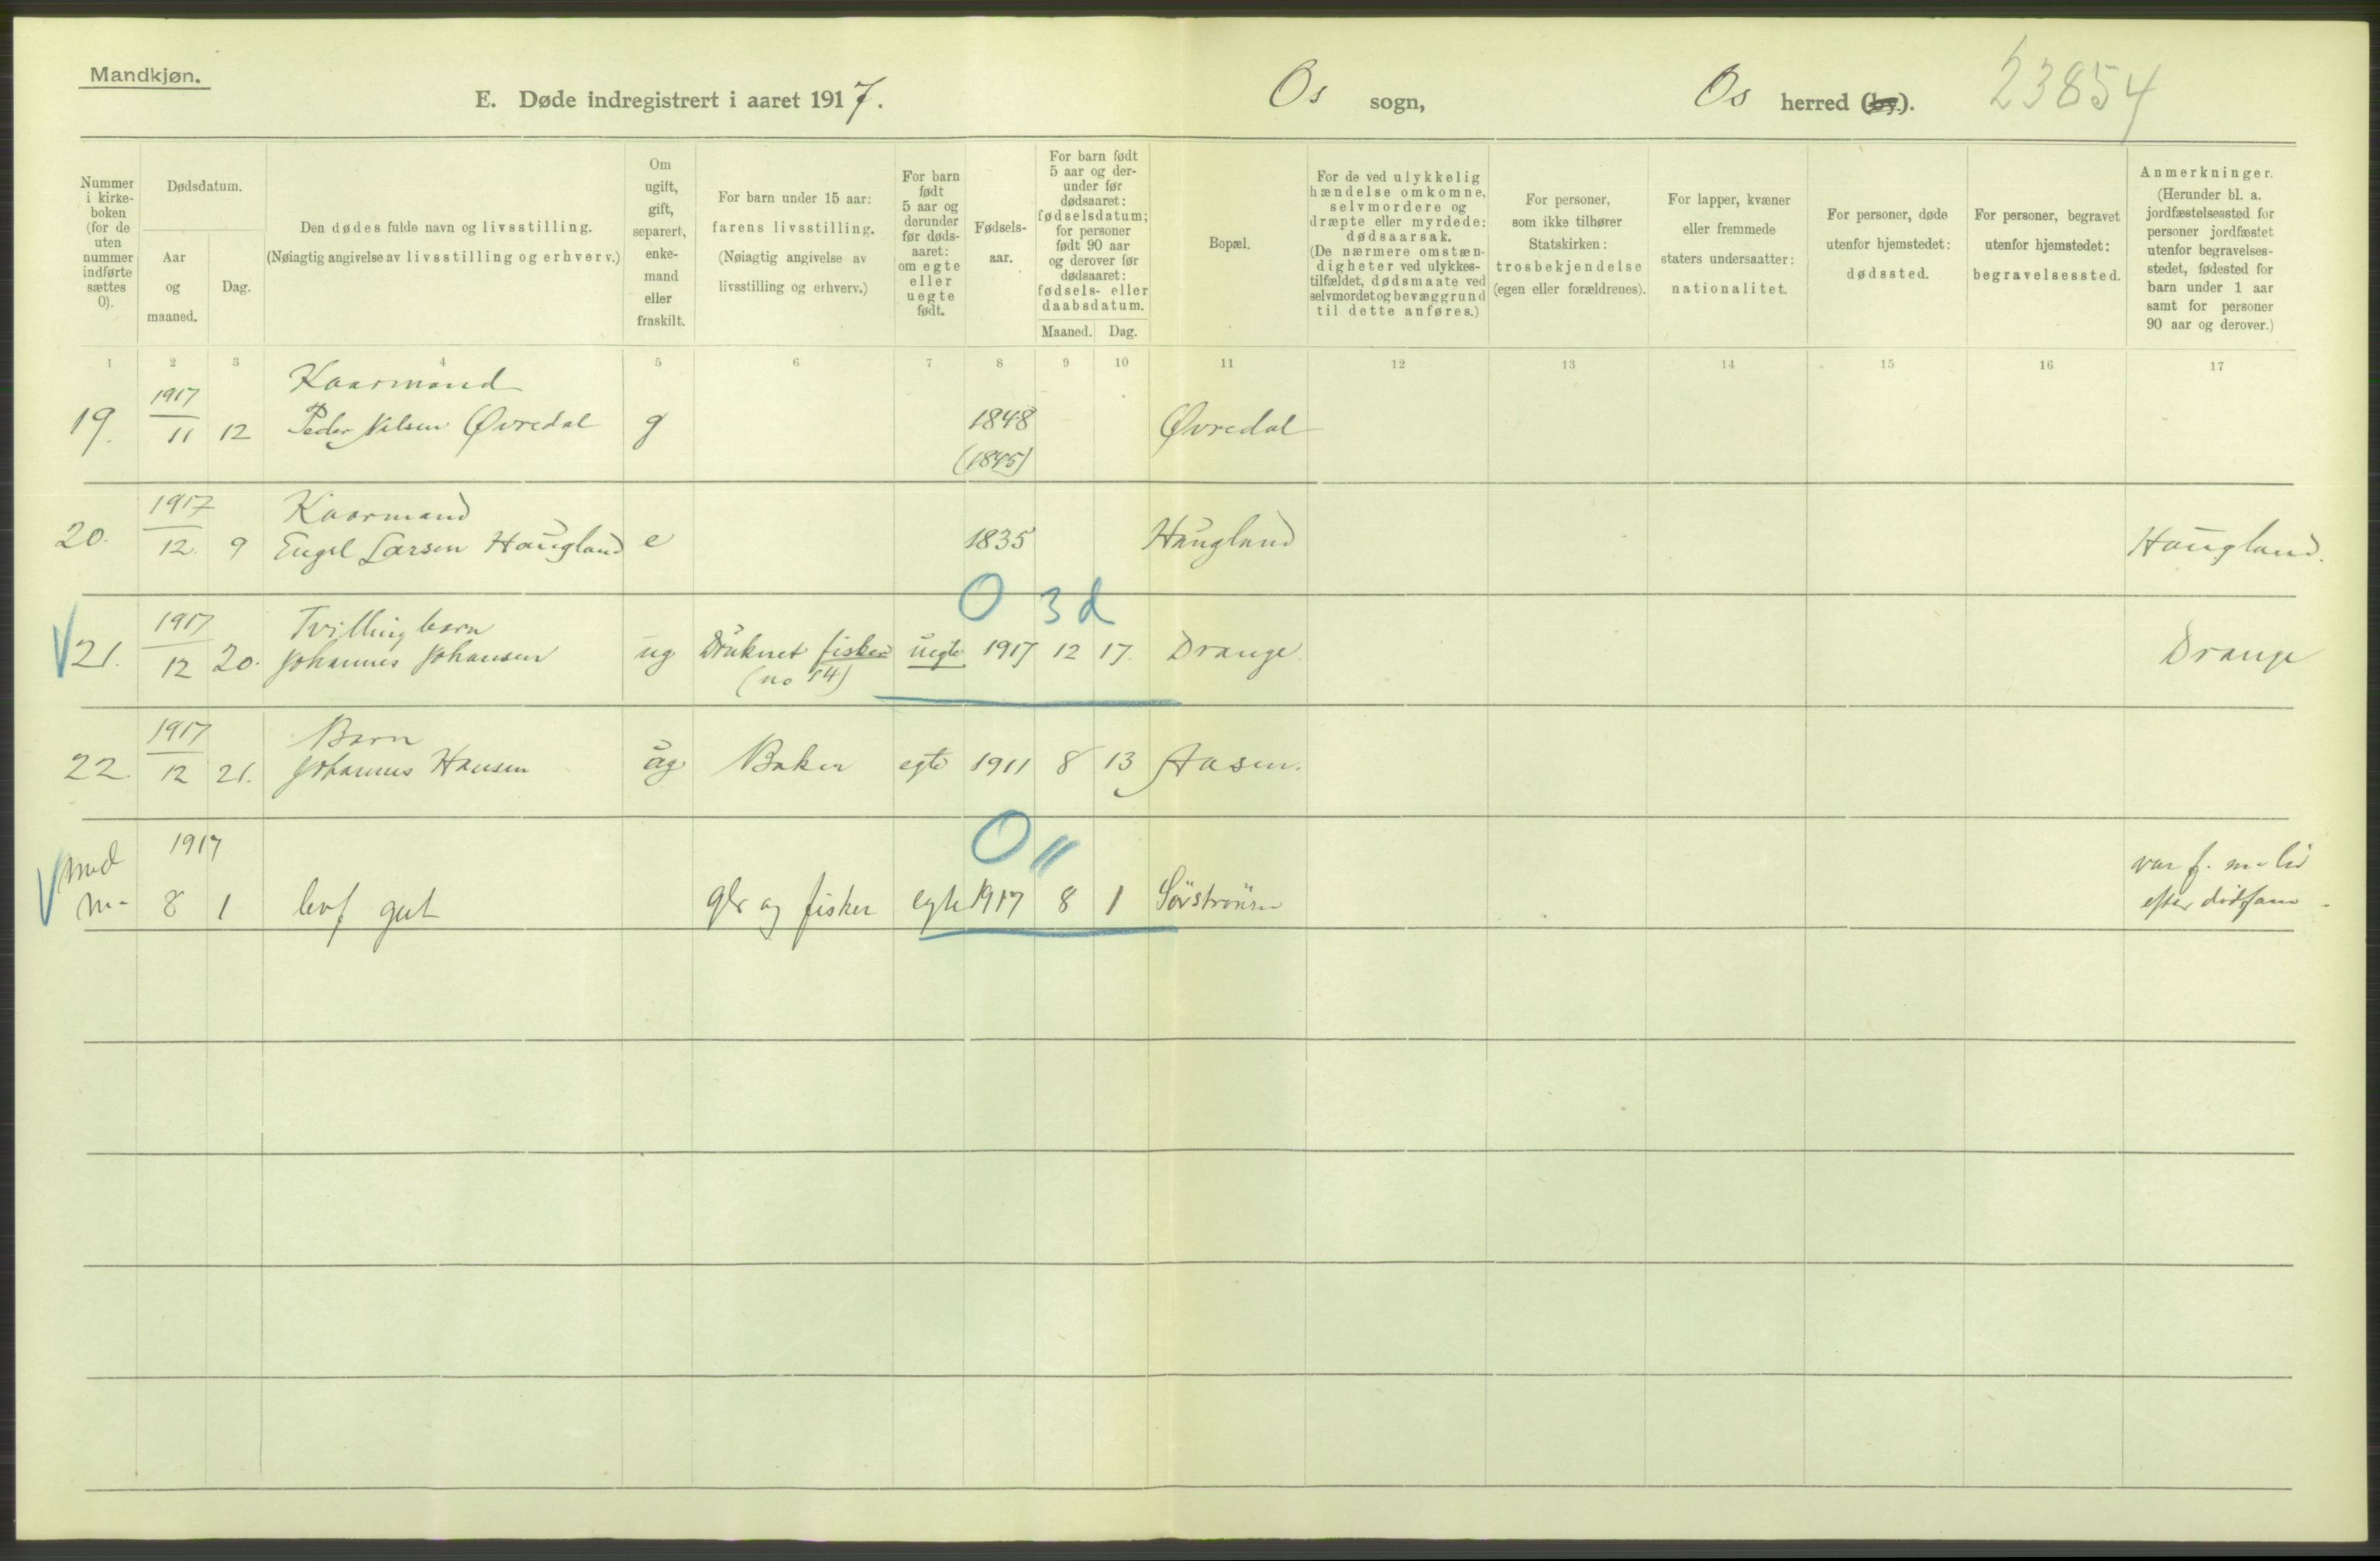 Mandkjøn.
E. Døde indregistrert i aaret 1917. Os sogn, Os herred (by). 23854
Nummer i kirkeboken (for de uten nummer indførte sættes 0).
Dødsdatum.
Aar og maaned.
Dag.
Den dødes fulde navn og livsstilling.
(Nøiagtig angivelse av livsstilling og erhverv.)
Om ugift, gift, separert, enkemand eller fraskilt.
For barn under 15 aar:
farens livsstilling.
(Nøiagtig angivelse av livsstilling og erhverv.)
For barn født 5 aar og derunder før dødsaaret: om egte eller uegte født.
Fødselsaar.
For barn født 5 aar og derunder før dødsaaret: fødselsdatum; for personer født 90 aar og derover før dødsaaret: fødsels- eller daabsdatum.
Maaned. Dag.
Bopæl.
For de ved ulykkelig hændelse omkomne, selvmordere og dræpte eller myrdede: dødsaarsak. (De nærmere omstændigheter ved ulykkestilfældet, dødsmaate ved selvmordet og bevæggrund til dette anføres.)
For personer, som ikke tilhører Statskirken: trosbekjendelse (egen eller forældrenes).
For lapper, kvæner eller fremmede staters undersaatter: nationalitet.
For personer, døde utenfor hjemstedet: dødssted.
For personer, begravet utenfor hjemstedet: begravelsessted.
Anmerkninger. (Herunder bl. a. jordfæstelsessted for personer jordfæstet utenfor begravelsesstedet, fødested for barn under 1 aar samt for personer 90 aar og derover.)
1 2 3 4 5 6 7 8 9 10 11 12 13 14 15 16 17
1917 Kaarmand
19. 11 12 Peder Nilsen Øvredal g 1848 Øvredal
(1845)
1917 Kaarmand
20. 12. 9 Engel Larsen Haugland e 1835 Haugland Haugland.
O 3 d
1917 Tvillingbarn
21. 12 20. Johannes Johansen ug Druknet fisker uegte 1917 12 17. Drange. Drange
(no 14)
1917 Barn
22. 12 21. Johannes Hansen ug Baker egte 1911 8 13 Aasen.
O
med 1917 var f. m. liv
m- 8 1 levf gut og fisker egte 1917 8 1 efter